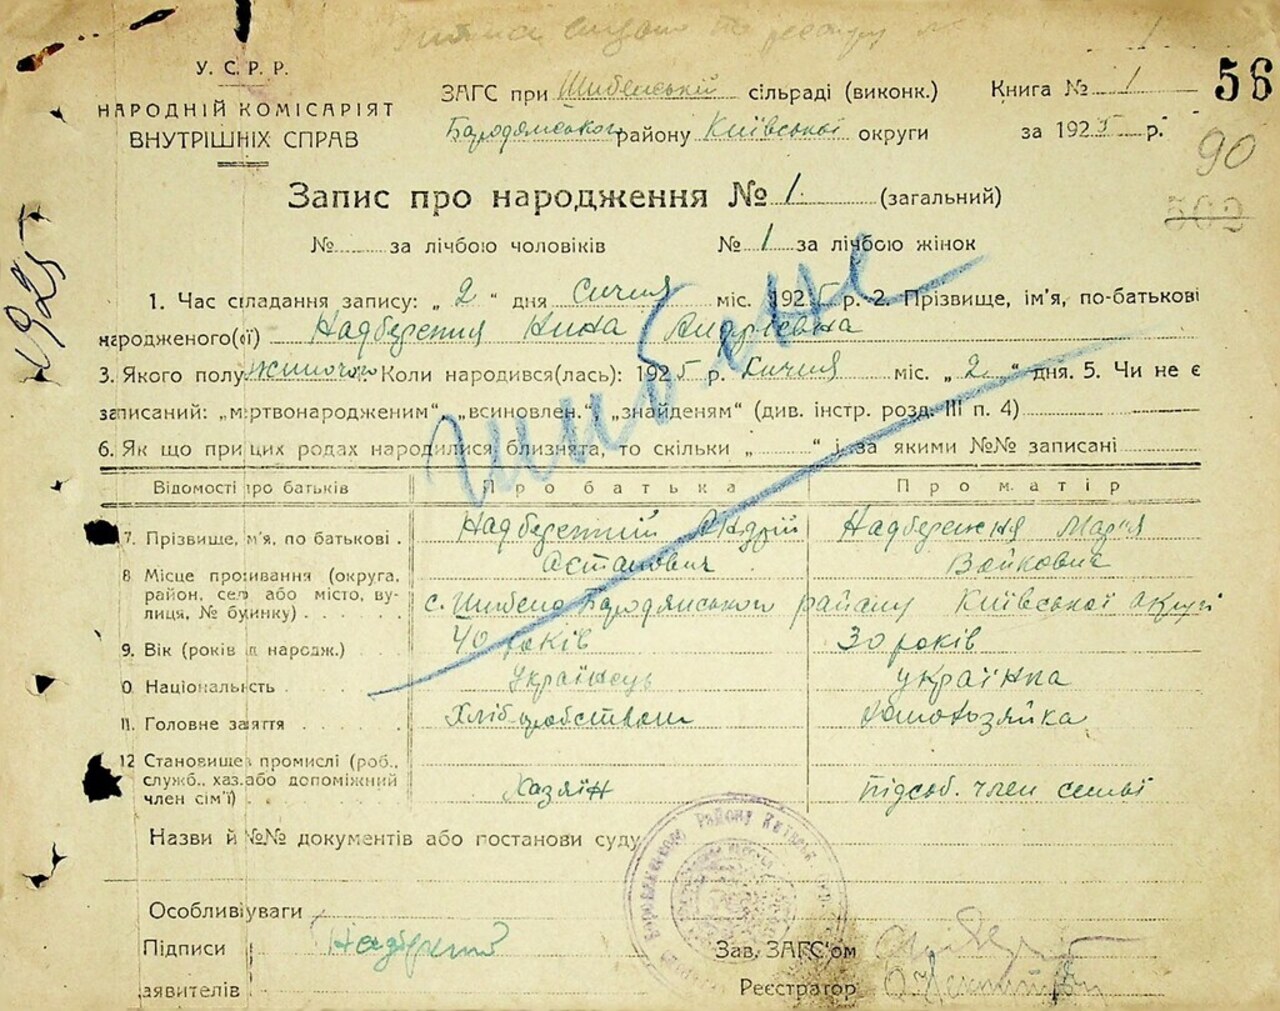 У. С. Р. Р.
НАРОДНІЙ КОМІСАРІЯТ
ВНУТРІШНІХ СПРАВ
ЗАГС при Шибенській сільраді (виконк.)
Бородянського району Київської округи
Книга № 1
за 1925 р.
56
90
502
1925
Запис про народження № 1. (загальний)
№ за лічбою чоловіків № 1 за лічбою жінок
Шибене
1. Час складання запису: „ 2 “ дня Січня міс. 1925 р. 2. Прізвище, ім'я, по-батькові
народженого(ої) Надбережня Нина Андріївна
3. Якого полу Жіночого. Коли народився(лась): 1925 р. Січня міс. „ 2 “ дня. 5. Чи не є
записаний: „мертвонародженим“, „всиновлен.“, „знайденям“ (див. інстр. розд. III п. 4)
6. Як що при цих родах народилися близнята, то скільки „ “ і за якими №№ записані
Відомості про батьків Про батька Про матір
7. Прізвище, ім'я, по батькові . Надбережний Андрій Надбережня Марія
8 Місце проживання (округа, район, село або місто, вулиця, № будинку) с. Шибено Бородянського району Київської округі
9. Вік (років від народж.) 40 років 30 років
0. Національність Українець українка
11. Головне заяття Хліборобством домохозяйка
12 Становище в промислі (роб., служб., хаз. або допоміжний член сім'ї) Хазяїн підсоб. член семьї
Назви й №№ документів або постанови суду
Особливі уваги
Підписи
заявителів
Зав. ЗАГС'ом
Реєстратор